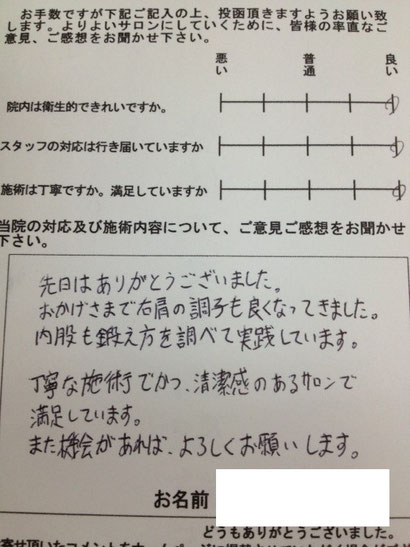 お手数ですが下記ご記入の上、投函頂きますようお願い致
します。よりよいサロンにしていくために、皆様の率直なご
意見、ご感想をお聞かせ下さい。
悪い 普通 良い
院内は衛生的できれいですか。
スタッフの対応は行き届いていますか
施術は丁寧ですか。満足していますか
当院の対応及び施術内容について、ご意見ご感想をお聞かせ
下さい。
先日はありがとうございました。
おかげさまで右肩の調子も良くなってきました。
内股も鍛え方を調べて実践しています。
丁寧な施術でかつ、清潔感のあるサロンで
満足しています。
また機会があれば、よろしくお願いします。
お名前
どうもありがとうございました。
寄せ頂いたコメントをホームペ